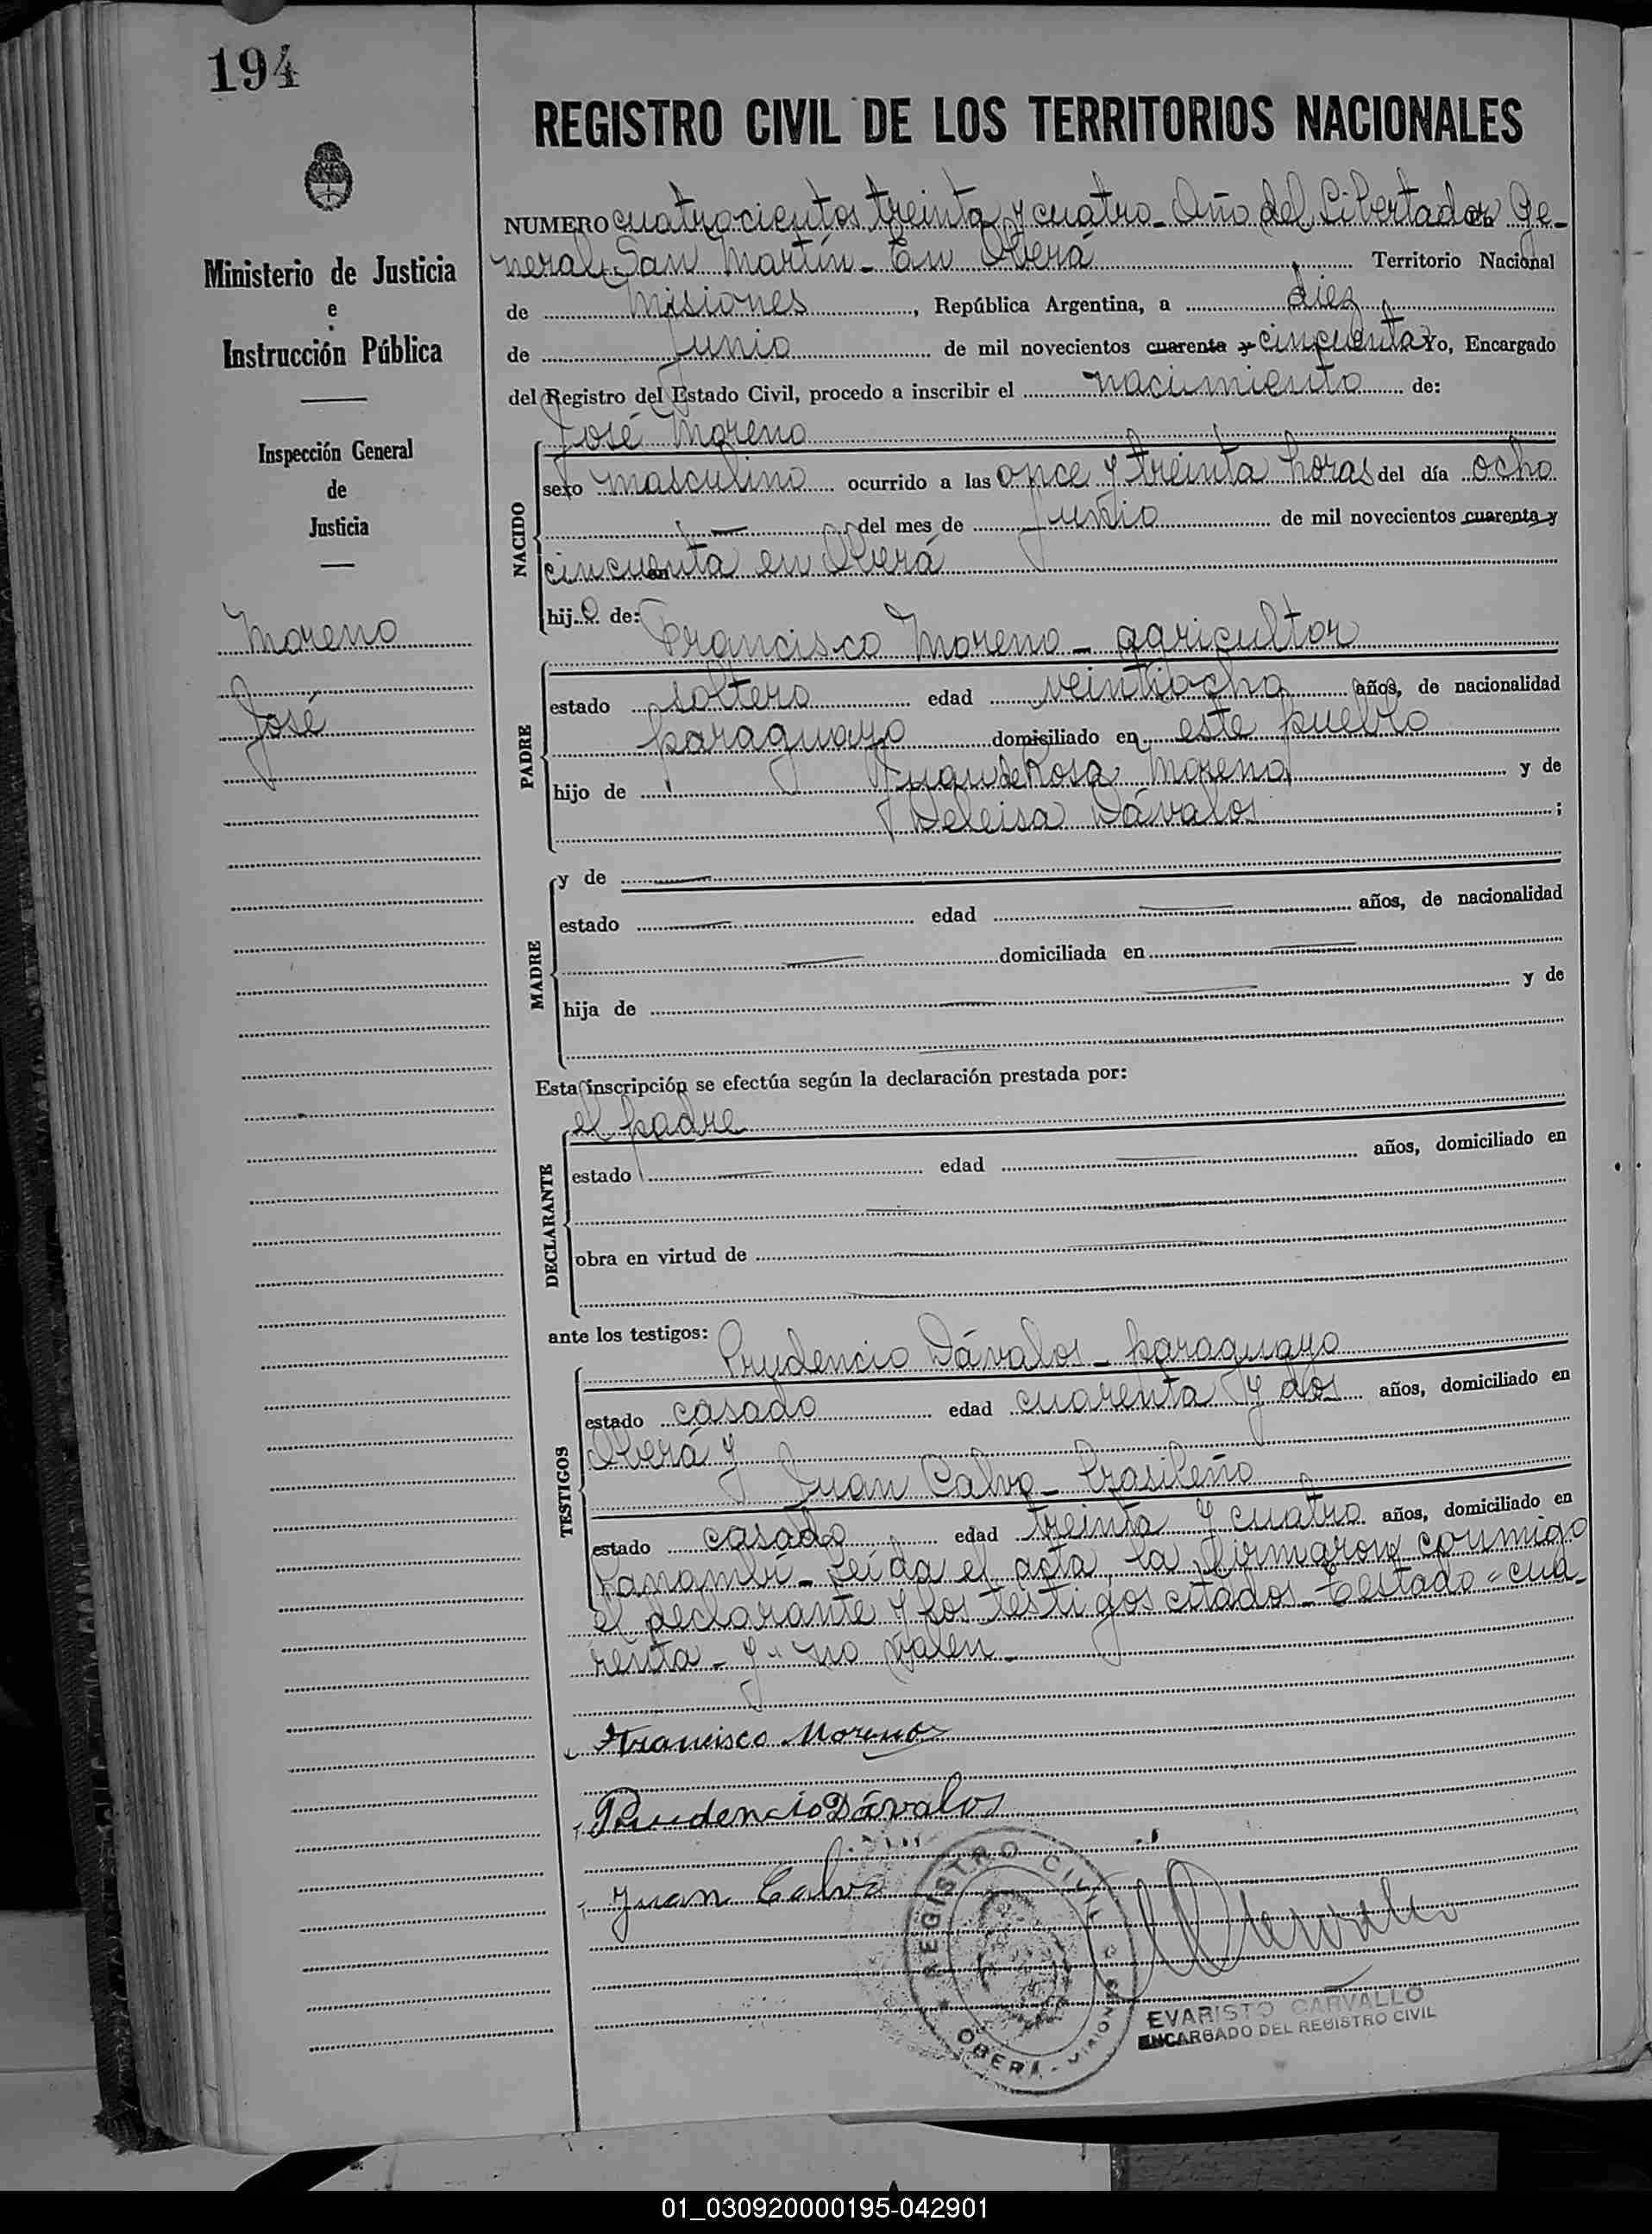 194
REGISTRO CIVIL DE LOS TERRITORIOS NACIONALES
Ministerio de Justicia
e
Instrucción Pública
Inspección General
de
Justicia
Moreno
José
NUMERO cuatrocientos treinta y cuatro - Año del Libertador Ge-
neral San Martín - En Oberá Territorio Nacional
de Misiones, República Argentina, a diez
de Junio de mil novecientos cuarenta y cincuenta Yo, Encargado
del Registro del Estado Civil, procedo a inscribir el nacimiento de:
José Moreno
NACIDO
sexo masculino ocurrido a las once y treinta horas del día ocho
del mes de Junio de mil novecientos cuarenta y
cincuenta en Oberá
hijo de: Francisco Moreno - agricultor
PADRE
estado soltero edad veintiocho años, de nacionalidad
paraguayo domiciliado en este pueblo
hijo de Juan de Rosa Moreno y de
Deleisa Dávalos ;
MADRE
y de
estado edad años, de nacionalidad
domiciliada en
hija de y de
Esta inscripción se efectúa según la declaración prestada por:
el padre
DECLARANTE
estado edad años, domiciliado en
obra en virtud de
ante los testigos: Prudencio Dávalos - paraguayo
TESTIGOS
estado casado edad cuarenta y dos años, domiciliado en
Oberá y
Juan Calvo - brasileño
estado casado edad treinta y cuatro años, domiciliado en
Panambí - Leída el acta, la firmaron conmigo
el declarante y los testigos citados - Testado = cua-
renta - y" no valen -
Francisco Moreno
Prudencio Dávalos
Juan Calvo
REGISTRO CIVIL
OBERÁ - MISIONES
EVARISTO CARVALLO
ENCARGADO DEL REGISTRO CIVIL
01_030920000195-042901